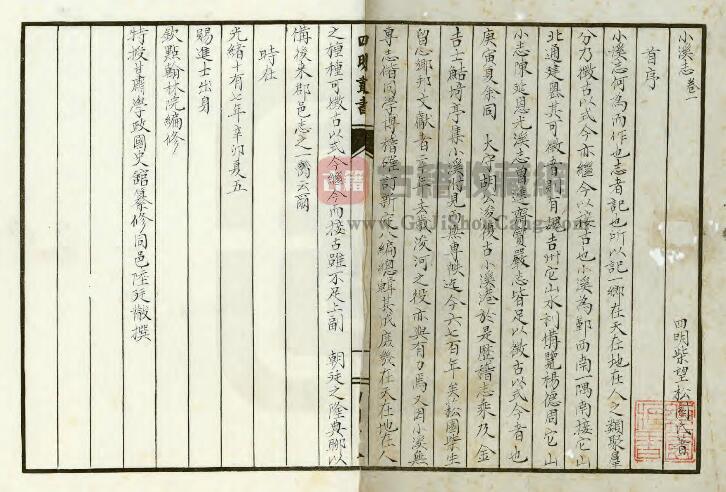 小溪志卷一
四明柴望松園氏著
首序
小溪志何為而作也志者記也所以記一鄉在天在地在人之類聚羣
分乃徵古以式今亦繼今以接古也小溪為鄞西南一隅南接它山
北通建嶴其可徵者則有魏吉州它山水利備覽楊德周它山
小志陳延恩光溪志曾進齋賢嚴志皆足以徵古以式今者也
庚寅夏余同 大宗胡公浚復古小溪港於是歷稽志乘及金
吉士鮚埼亭集小溪附見 無專帙迄今六七百年矣松園柴生
留志鄉邦文獻者二十年去歲浚河之役亦與有力焉又因小溪無
專志偕同學博稽確訂新定八編總輯其成庶幾在天在地在人
之種種可徵古以式今繼今而接古雖不足上副 朝廷之隆典聊以
備後來郡邑志之一
云爾
時在
光緒十有七年辛卯夏五
賜進士出身
欽點翰林院編修
特授甘肅學政國史館纂修同邑陸廷黻撰
四明叢書
古籍收藏網
www.GuJiShouCang.com